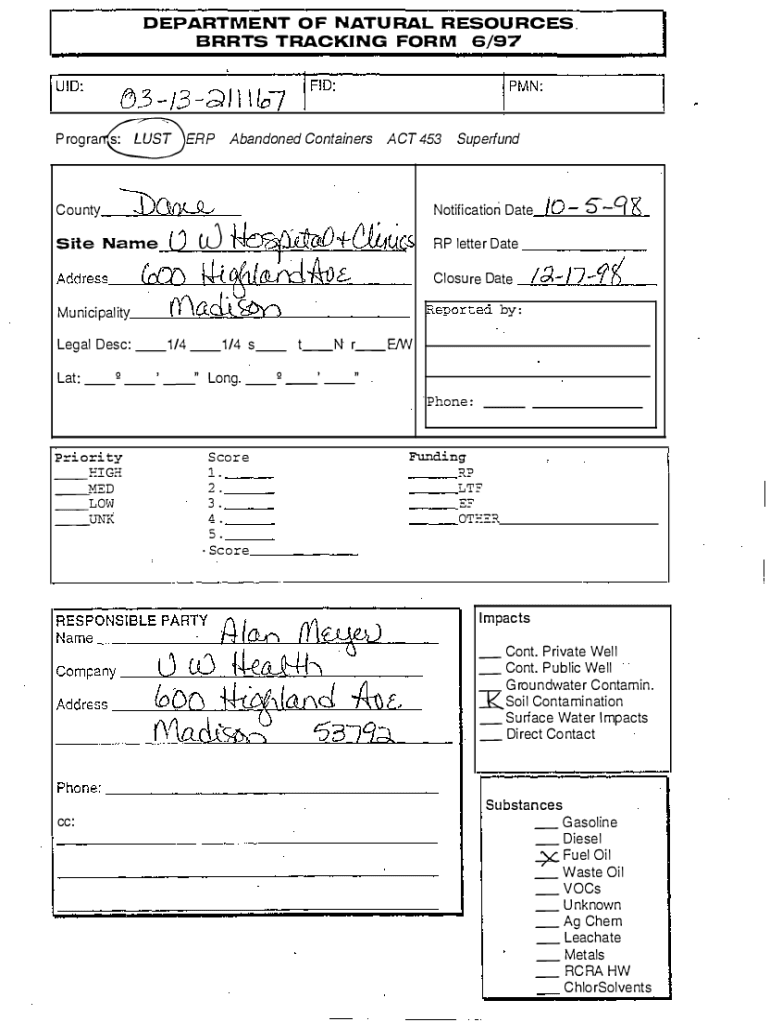 DEPARTMENT OF NATURAL RESOURCES
BRRTS TRACKING FORM 6/97
UID: 03-13-211167 FID: PMN:
Programs: LUST ERP Abandoned Containers ACT 453 Superfund
County Dane
Site Name U W Hospital + Clinics
Address 600 Highland Ave
Municipality Madison
Legal Desc: ____1/4 ____1/4 s____ t____N r____E/W
Lat: ____º ____' ____" Long. ____º ____' ____"
Notification Date 10-5-98
RP letter Date
Closure Date 12-17-98
Reported by:
Phone:
Priority
____HIGH
____MED
____LOW
____UNK
Score
1.
2.
3.
4.
5.
Score
Funding
____RP
____LTF
____EF
____OTHER
RESPONSIBLE PARTY
Name Alan Meyer
Company U W Health
Address 600 Highland Ave.
Madison 53792
Phone:
cc:
Impacts
___ Cont. Private Well
___ Cont. Public Well
Groundwater Contamin.
X Soil Contamination
___ Surface Water Impacts
___ Direct Contact
Substances
___ Gasoline
___ Diesel
X Fuel Oil
___ Waste Oil
___ VOCs
___ Unknown
___ Ag Chem
___ Leachate
___ Metals
___ RCRA HW
___ ChlorSolvents